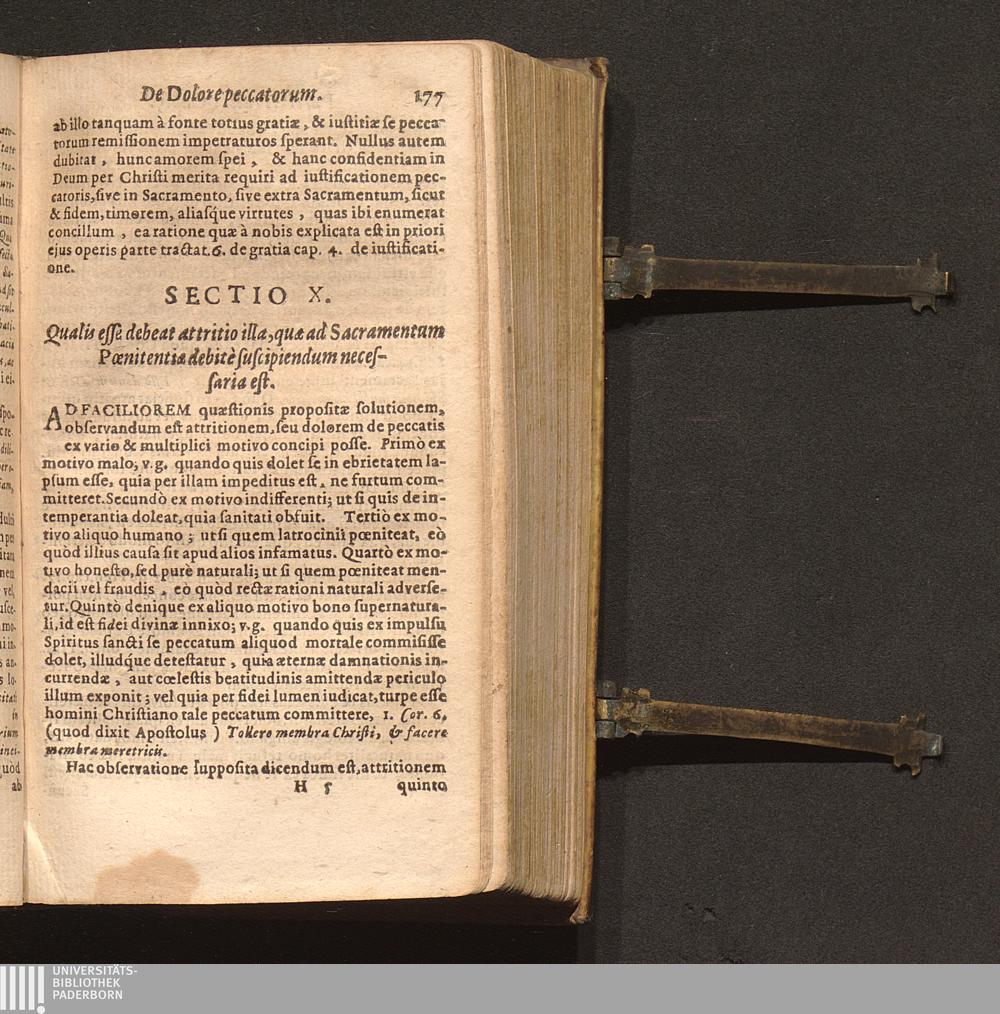 De Dolore peccatorum. 177
ab illo tanquam à fonte totius gratiæ, & iuſtitiæ ſe pecca-
torum remiſſionem impetraturos ſperant. Nullus autem
dubitat, hunc amorem ſpei, & hanc confidentiam in
Deum per Chriſti merita requiri ad iuſtificationem pec-
catoris, ſive in Sacramento, ſive extra Sacramentum, ſicut
& fidem, timorem, aliaſque virtutes, quas ibi enumerat
concilium, ea ratione quæ à nobis explicata eſt in priori
ejus operis parte tractat. 6. de gratia cap. 4. de iuſtificati-
one.
SECTIO X.
Qualis eſſe debeat attritio illa, quæ ad Sacramentum
Pœnitentiæ debitè ſuſcipiendum neceſ-
ſaria eſt.
AD FACILIOREM quæſtionis propoſitæ ſolutionem,
obſervandum eſt attritionem, ſeu dolorem de peccatis
ex vario & multiplici motivo concipi poſſe. Primò ex
motivo malo; v.g. quando quis dolet ſe in ebrietatem la-
pſum eſſe, quia per illam impeditus eſt, ne furtum com-
mitteret. Secundò ex motivo indifferenti; ut ſi quis de in-
temperantia doleat, quia ſanitati obfuit. Tertiò ex mo-
tivo aliquo humano; ut ſi quem latrocinii pœniteat, eò
quòd illius cauſa ſit apud alios infamatus. Quartò ex mo-
tivo honeſto, ſed purè naturali; ut ſi quem pœniteat men-
dacii vel fraudis, eò quòd rectæ rationi naturali adverſe-
tur. Quintò denique ex aliquo motivo bono ſupernatura-
li, id eſt fidei divinæ innixo; v.g. quando quis ex impulſu
Spiritus ſancti ſe peccatum aliquod mortale commiſiſſe
dolet, illudque deteſtatur, quia æternæ damnationis in-
currendæ, aut cœleſtis beatitudinis amittendæ periculo
illum exponit; vel quia per fidei lumen iudicat, turpe eſſe
homini Chriſtiano tale peccatum committere, 1. Cor. 6.
(quod dixit Apoſtolus) Tollere membra Chriſti, & facere
membra meretricis.
Hac obſervatione ſuppoſita dicendum eſt, attritionem
H 5 quinto
UNIVERSITÄTS-
BIBLIOTHEK
PADERBORN